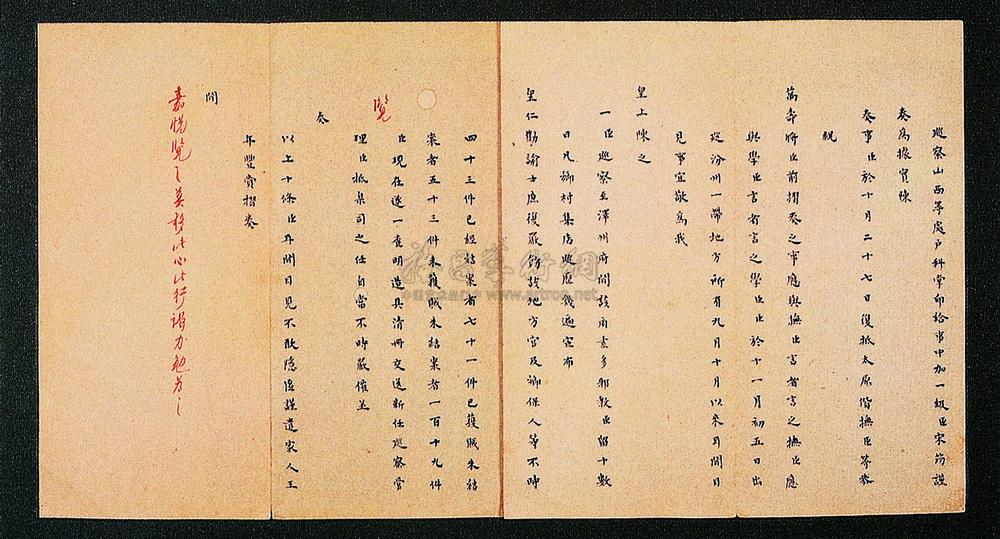 巡察山西等處戶科掌印給事中加一級臣宋筠謹
奏為據實陳
奏事臣於十月二十七日復抵太原偕撫臣等恭
祝
萬壽將臣前摺奏之事應與撫臣言者言之撫臣應
與學臣言者言之學臣臣於十一月初五日出
巡汾州一帶地方所有九月十月以來耳聞目
見事宜敬為我
皇上陳之
一臣巡察至澤州府聞該府素多邪教臣留十數
日凡鄉村集店巡歷幾遍宣布
皇仁勸諭士庶復嚴飭該地方官及鄉保人等不時
四十三件已經結案者七十一件已獲賊未結
案者五十三件未獲賊未結案者一百十九件
臣現在逐一查明造具清冊交送新任巡察管
理臣抵臬司之任自當不時嚴催並
奏
覽
以上十條臣耳聞目見不敢隱匿謹遣家人王
年豐齎摺奏
聞
嘉悅覽之莫移此心此行竭力勉為之